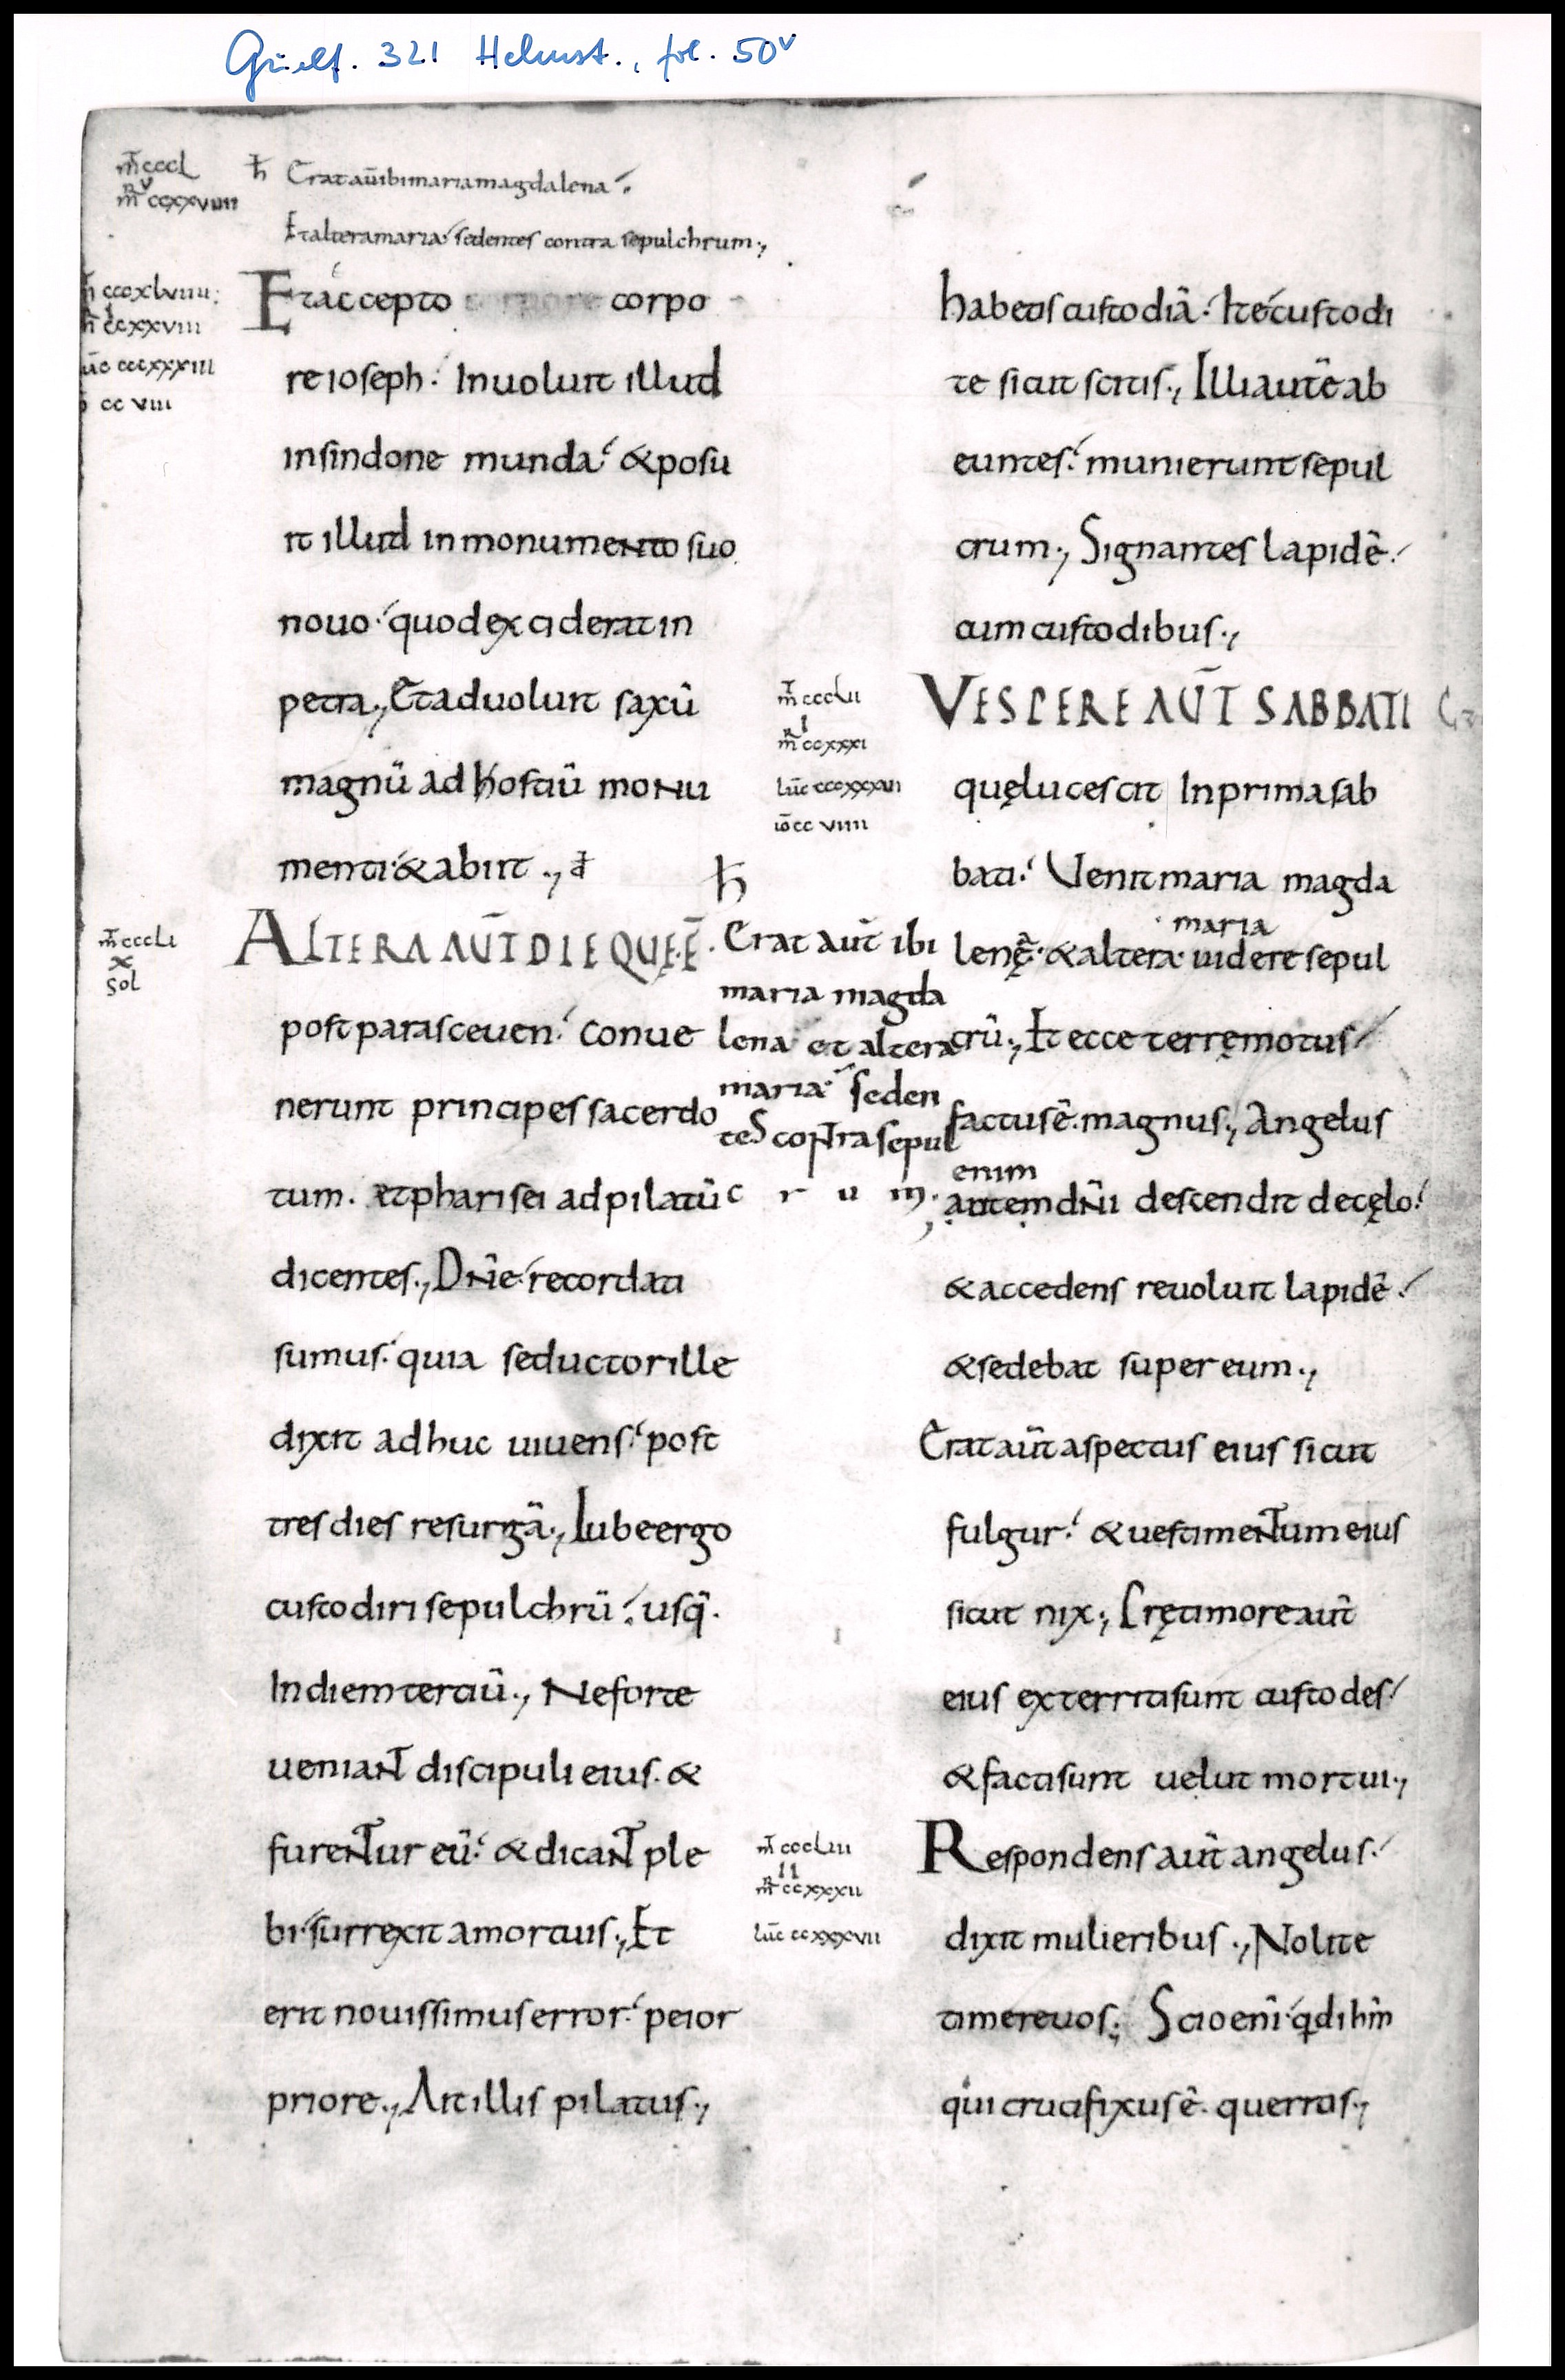 Guelf. 321 Helmst., fol. 50v
m̄t cccL
m̄r ccxxviiii
ħ Erat aūt ibi maria magdalena
Et altera maria sedentes contra sepulchrum.,
cccxlviiii
ccxxviii
cccxxxiii
cc viii
Et accepto corpore corpo
re ioseph. Inuoluit illud
in sindone munda. & posu
it illud in monumento suo
nouo. quod exciderat in
petra., Et aduoluit saxū
magnū ad hostiū monu
menti. & abiit.,
m̄t cccLi
x
sol
ALTERA AŪT DIE QUĘ.Ē.
post parasceuen. conue
nerunt principes sacerdo
tum. et pharisei ad pilatū
dicentes., Dn̄e. recordati
sumus. quia seductor ille
dixit adhuc uiuens. post
tres dies resurgā., Iube ergo
custodiri sepulchrū. usq̄.
In diem tertiū., Ne forte
ueniant discipuli eius. &
furentur eū. & dicant ple
bi. surrexit a mortuis., Et
erit nouissimus error. peior
priore., Ait illis pilatus.,
ħ
Erat aūt ibi
maria magda
lena et altera
maria. seden
tes contra sepul
c r u m.,
habetis custodiā. Ite custodi
te sicut scitis., Illi autē ab
euntes. munierunt sepul
crum., Signantes lapidē.
cum custodibus.,
m̄t cccLii
i
m̄r ccxxxi
lūc cccxxxvi
iō cc viiii
VESPERE AŪT SABBATI
quę lucescit In prima sab
bati. Uenit maria magda
maria
lenę. & altera. uidere sepul
crū., Et ecce terręmotus
factus ē. magnus., Angelus
enim
autem dn̄i descendit de cęlo.
& accedens reuoluit lapidē.
& sedebat super eum.,
Erat aūt aspectus eius sicut
fulgur. & uestimentum eius
sicut nix., Prę timore aūt
eius exterriti sunt custodes
& facti sunt uelut mortui.,
m̄t cccLiii
ii
m̄r ccxxxii
lūc ccxxxvii
Respondens aūt angelus.
dixit mulieribus., Nolite
timere uos., Scio enī. qd ihm̄
qui crucifixus ē. queritis.,